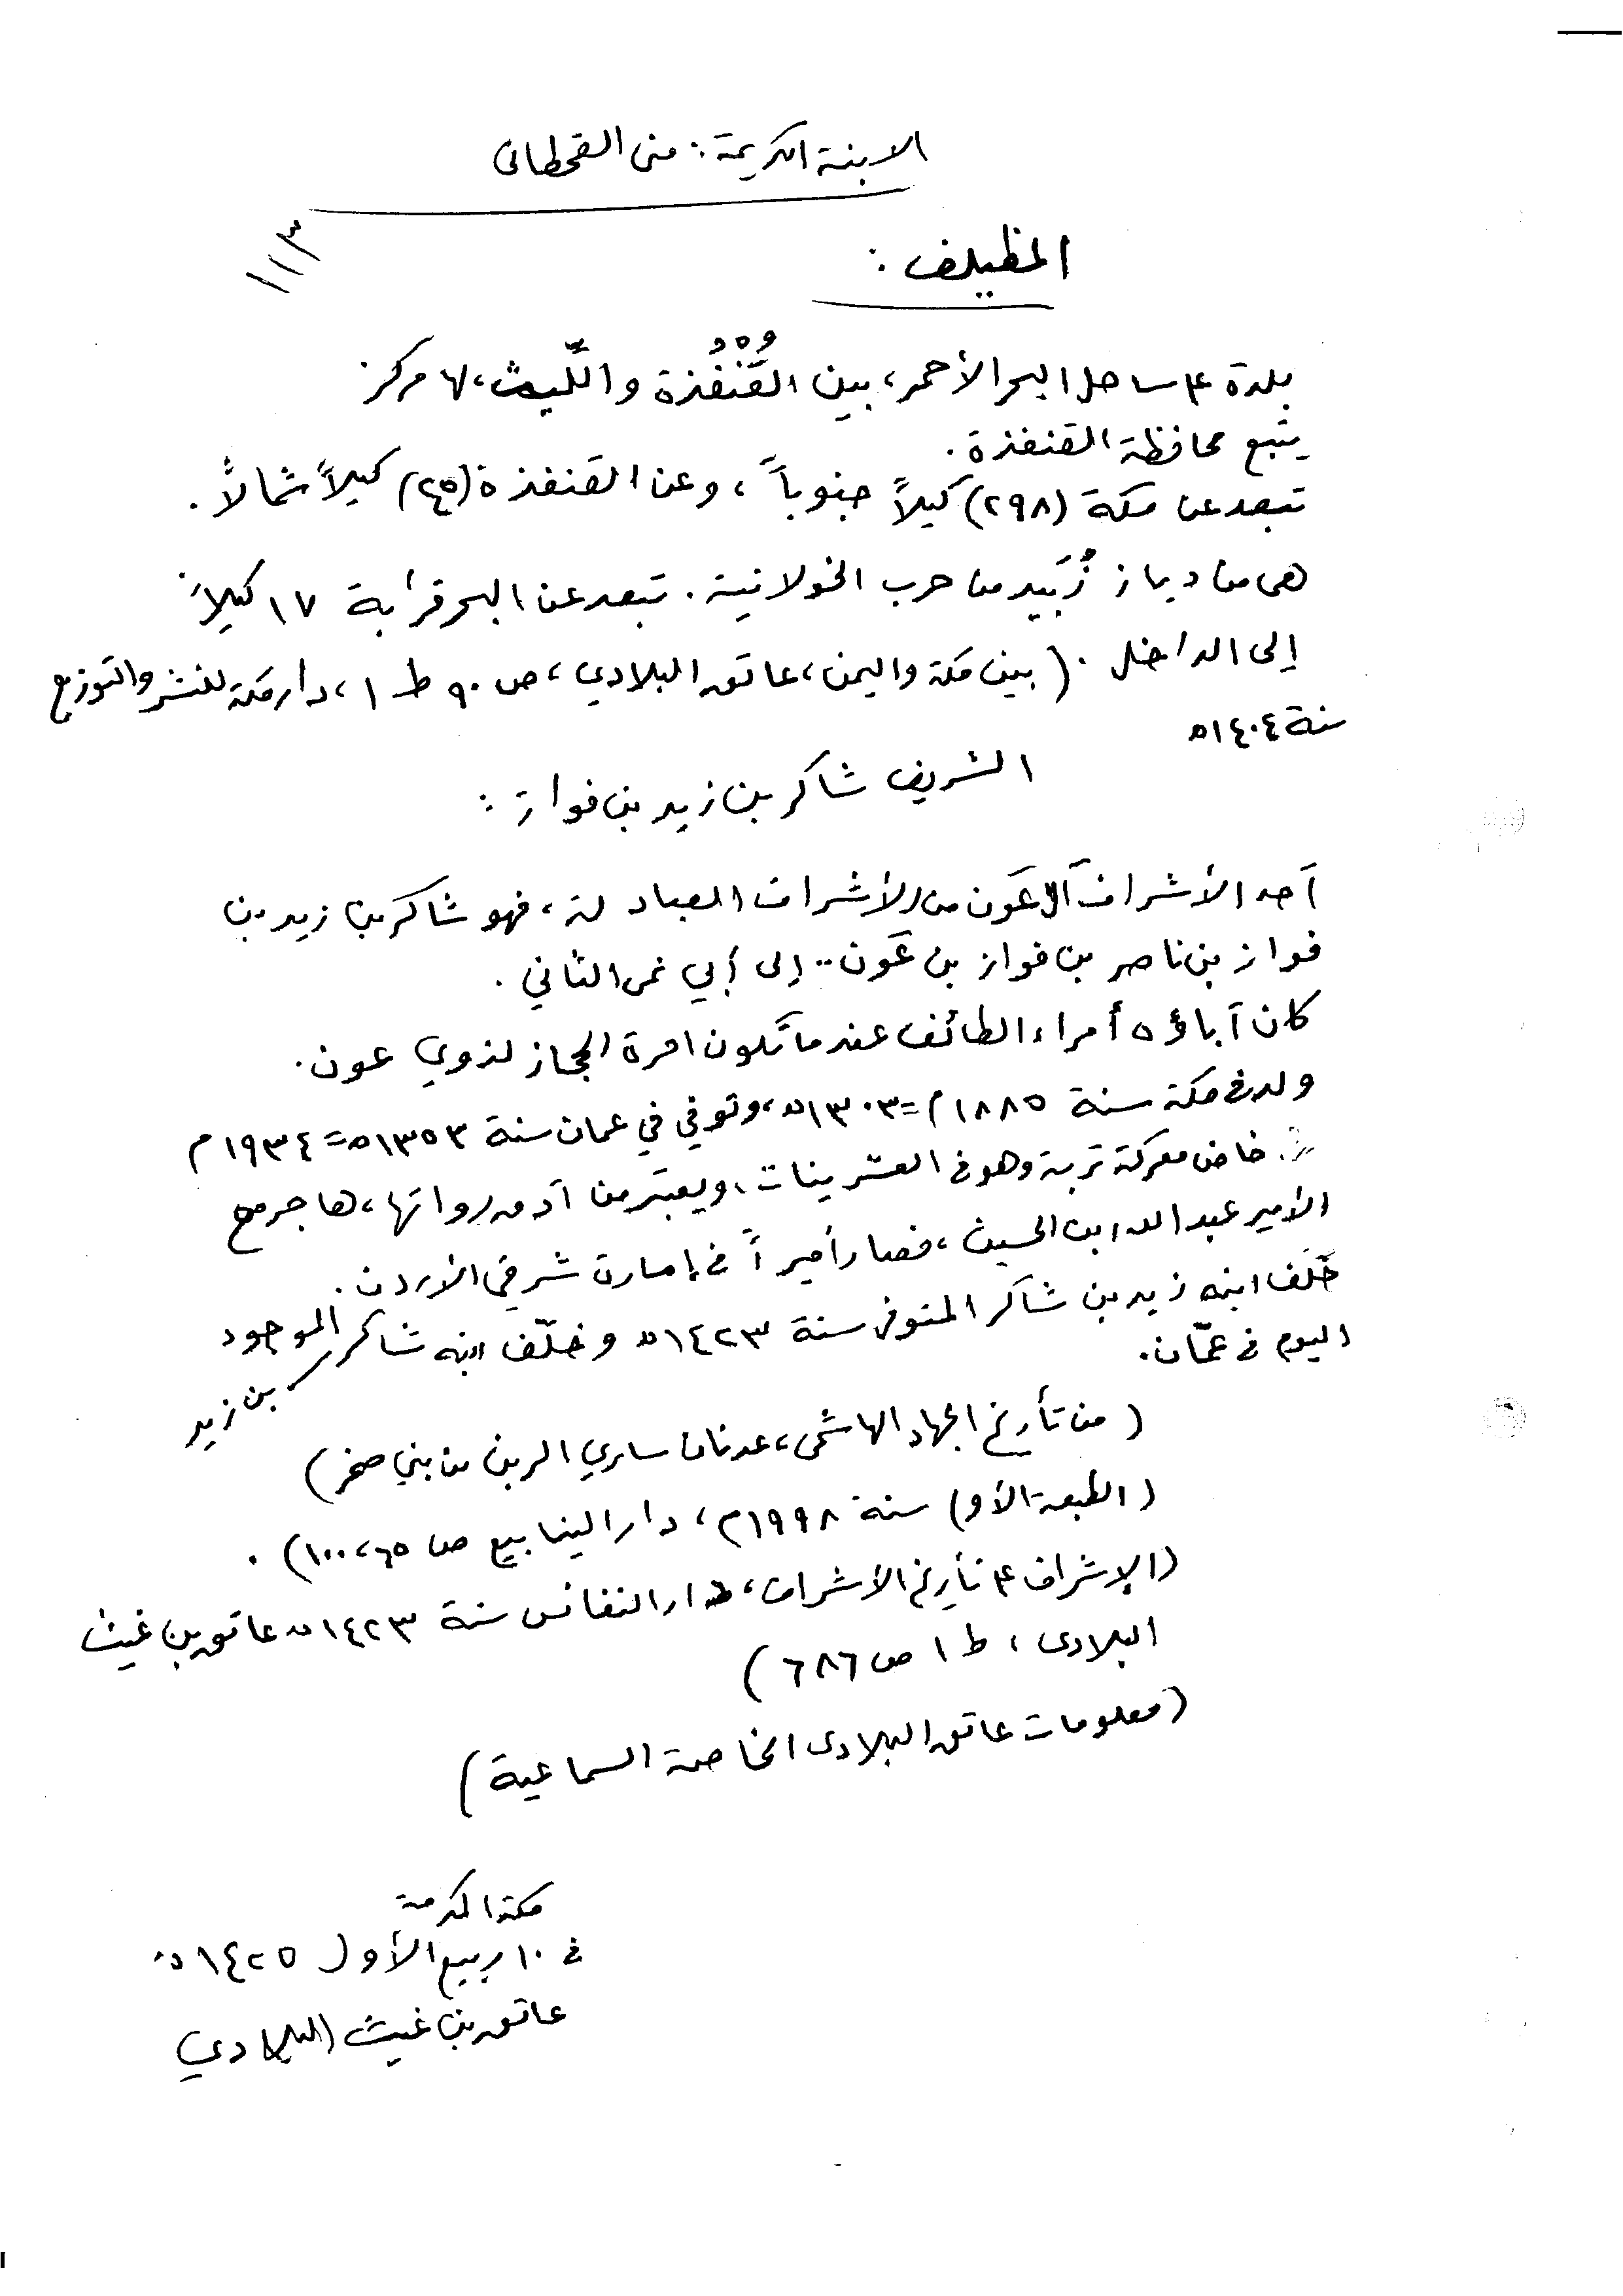 الابنة الكريمة: منى القحطاني
١١٣
المظيلف:
بلدة على ساحل البحر الأحمر، بين القُنْفُذة واللَّيث، لها مركز
يتبع محافظة القنفذة.
تبعد عن مكة (٢٩٨) كيلاً جنوباً، وعن القنفذة (٤٥) كيلاً شمالاً.
هي من ديار زُبَيد من حرب الخولانية. تبعد عن البحر قرابة ١٧ كيلاً
إلى الداخل. (بين مكة واليمن، عاتق البلادي، ص ٩٠ ط ١، دار مكة للنشر والتوزيع
سنة ١٤٠٤ه
الشريف شاكر بن زيد بن فواز:
أحد الأشراف آل عَون من الأشراف العبادلة، فهو شاكر بن زيد بن
فواز بن ناصر بن فواز بن عَون.. إلى أبي نمي الثاني.
كان آباؤه أمراء الطائف عندما تكون امرة الحجاز لذوي عون.
ولد في مكة سنة ١٨٨٥م = ١٣٠٣ه، وتوفي في عمان سنة ١٣٥٣ه = ١٩٣٤م
خاض معركة تربة وهو في العشرينات، ويعتبر من رواتها، هاجر مع
الأمير عبد الله ابن الحسين، فصار أميراً في إمارة شرقي الأردن.
خلَّف ابنه زيد بن شاكر المتوفى سنة ١٤٢٣ه وخلّف ابنه شاكر بن زيد الموجود
اليوم في عمّان.
(من تأريخ الجهاد الهاشمي، عدنان ساري الزبن من بني صخر)
(الطبعة الأو) سنة ١٩٩٨م، دار الينابيع ص ٦٥، ١٠٠).
(الإشراف على تأريخ الأشراف، دار النفائس سنة ١٤٢٣ه عاتق بن غيث
البلادي، ط ١ ص ٦٨٦)
(معلومات عاتق البلادي الخاصة السماعية)
مكة المكرمة
في ١٠ ربيع الأول ١٤٢٥ه
عاتق بن غيث البلادي